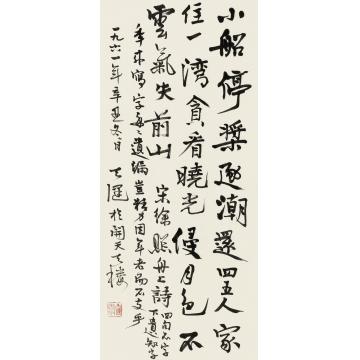 小船停槳逐潮還四五人家
住一湾貪看曉光侵月色不
雲氣失前山 宋徐照舟上詩 四句不字
下遺知字
年來寫字每々遺漏豈精力因年老而不支乎
一九六一年辛丑冬日 於開天天樓